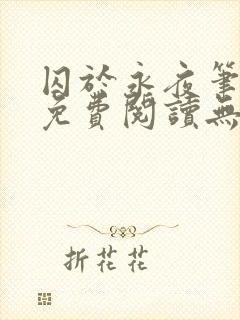 囚於永夜筆
免費閱讀無
折花花